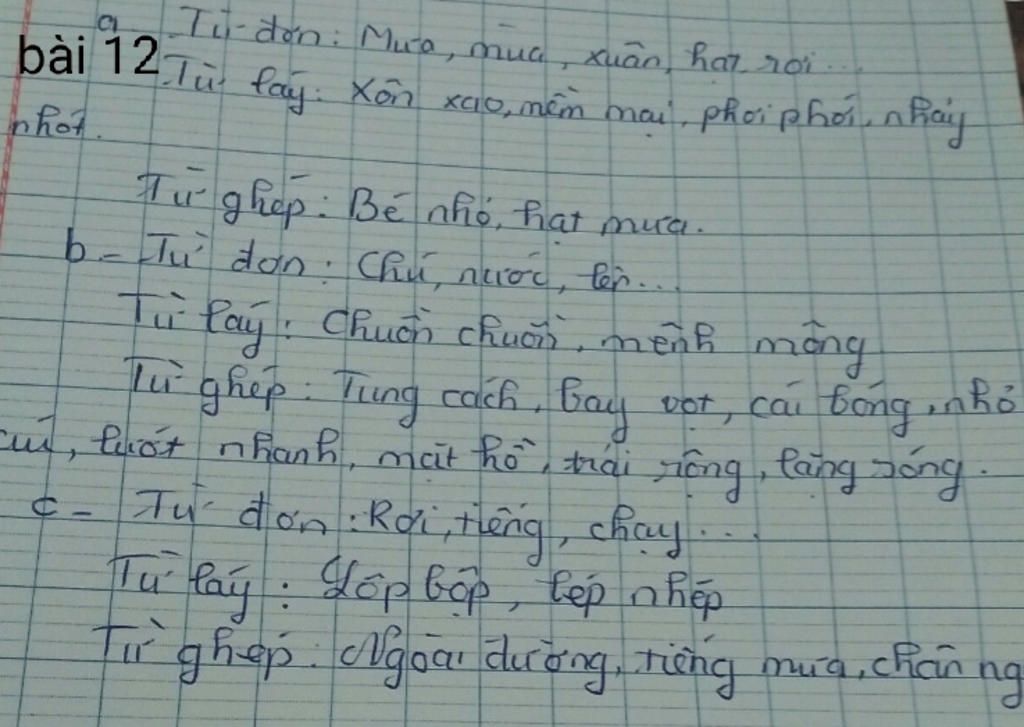 a Từ đơn: Mưa, mùa, xuân, hạt, rơi...
bài 12
Từ láy: Xôn xao, mềm mại, phơi phới, nhảy
nhót.
Từ ghép: Bé nhỏ, hạt mưa.
b - Từ đơn: Chú, nước, lên...
Từ láy: Chuồn chuồn, mênh mông
Từ ghép: Tung cách, bay vọt, cái bóng, nhỏ
xíu, lướt nhanh, mặt hồ, trải rộng, lặng sóng.
c - Từ đơn: Rơi, tiếng, chạy...
Từ láy: Lộp bộp, lép nhép
Từ ghép: Ngoài đường, tiếng mưa, chân ng